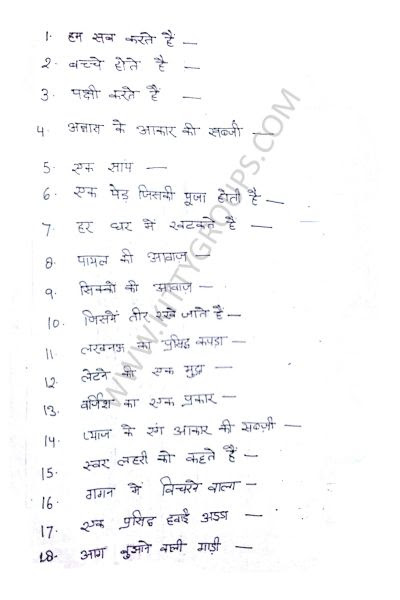 1. हम सब करते हैं —
2. बच्चे होते हैं —
3. पक्षी करते हैं —
4. अनाज के आकार की सब्जी —
5. एक सांप —
6. एक पेड़ जिसकी पूजा होती है —
7. हर घर में खटकते हैं —
8. पायल की आवाज़ —
9. सिक्कों की आवाज़ —
10. जिसमें तीर रखे जाते हैं —
11. लखनऊ का प्रसिद्ध कपड़ा —
12. लेटने की एक मुद्रा —
13. वर्जिश का एक प्रकार —
14. प्याज के रंग आकार की सब्ज़ी —
15. स्वर लहरी को कहते हैं —
16. गगन में विचरने वाला —
17. एक प्रसिद्ध हवाई अड्डा —
18. आग बुझाने वाली गाड़ी —
WWW.KITTYGROUPS.COM